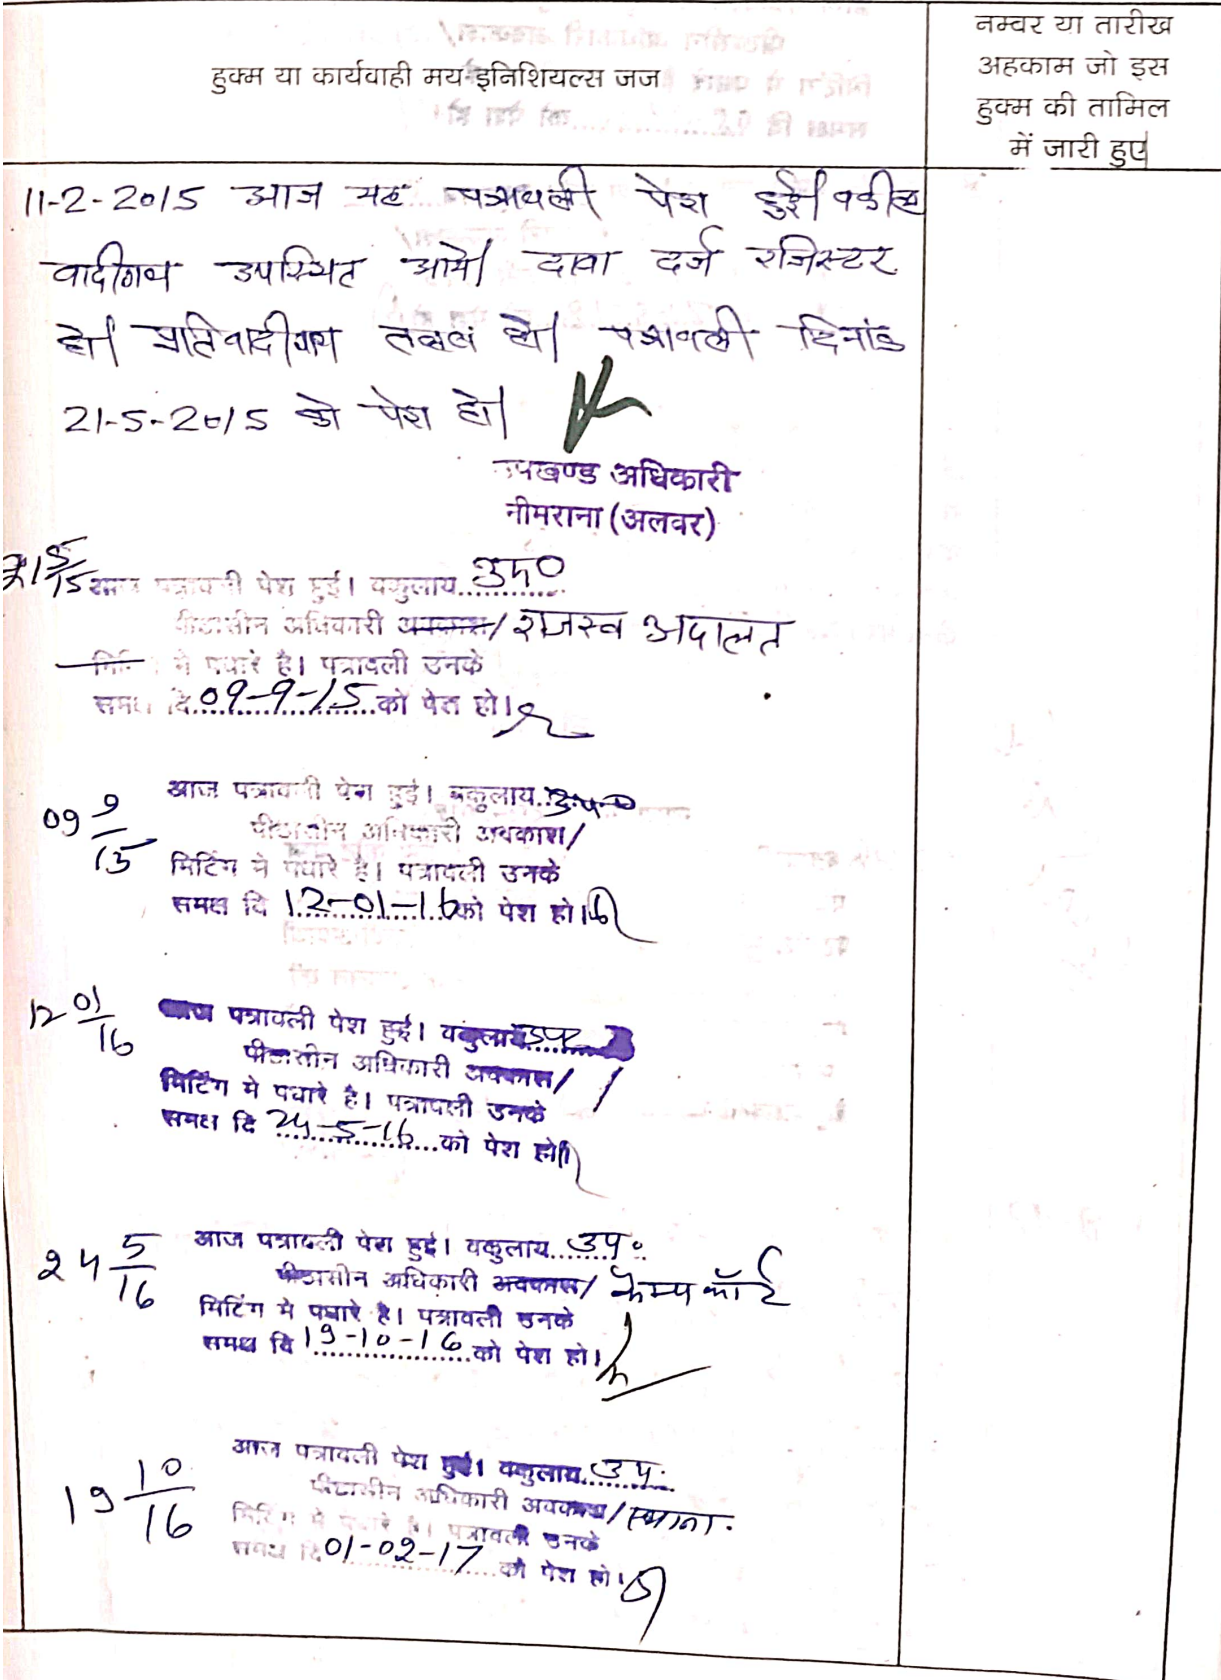 हुक्म या कार्यवाही मय इनिशियल्स जज
नम्वर या तारीख
अहकाम जो इस
हुक्म की तामिल
में जारी हुए
11-2-2015 आज यह पत्रावली पेश हुई। वकील
वादीगण उपस्थित आये। दावा दर्ज रजिस्टर
हो। प्रतिवादीगण तलब हो। पत्रावली दिनांक
21-5-2015 को पेश हो।
उपखण्ड अधिकारी
नीमराना (अलवर)
21 5/15 आज पत्रावली पेश हुई। वकुलाय..उप०
पीठासीन अधिकारी अवकाश/ राजस्व अदालत
मिटिंग मे पधारे है। पत्रावली उनके
समक्ष दि 09-9-15 को पेश हो।
09 9/15 आज पत्रावली पेश हुई। वकुलाय..उप०
पीठासीन अधिकारी अवकाश/
मिटिंग मे पधारे है। पत्रावली उनके
समक्ष दि 12-01-16 को पेश हो।
12 01/16 आज पत्रावली पेश हुई। वकुलाय उप
पीठासीन अधिकारी अवकाश/
मिटिंग मे पधारे है। पत्रावली उनके
समक्ष दि 24-5-16 को पेश हो।
24 5/16 आज पत्रावली पेश हुई। वकुलाय..उप०
पीठासीन अधिकारी अवकाश/ केम्प कॉर्ट
मिटिंग मे पधारे है। पत्रावली उनके
समक्ष दि 19-10-16 को पेश हो।
19 10/16 आज पत्रावली पेश हुई। वकुलाय..उप.
पीठासीन अधिकारी अवकाश/
मिटिंग मे पधारे है। पत्रावली उनके
समक्ष दि 01-02-17 को पेश हो।